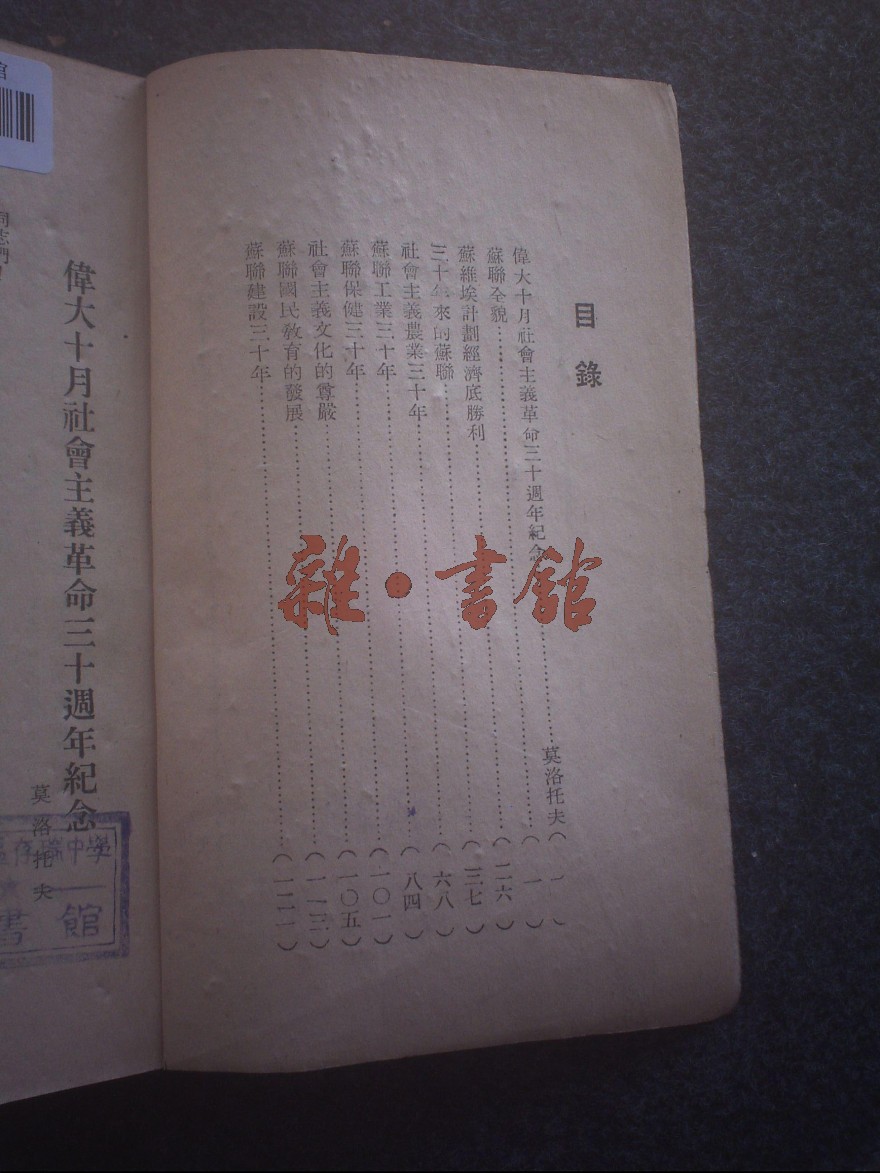 目錄
偉大十月社會主義革命三十週年紀念……莫洛托夫(一)
蘇聯全貌……(一)
蘇維埃計劃經濟底勝利……(二六)
三十年來的蘇聯……(三七)
社會主義農業三十年……(六八)
蘇聯工業三十年……(八四)
蘇聯保健三十年……(一〇一)
社會主義文化的尊嚴……(一〇五)
蘇聯國民教育的發展……(一一三)
蘇聯建設三十年……(一二一)
雜·書館
偉大十月社會主義革命三十週年紀念
莫洛托夫
同志們
中學
書館